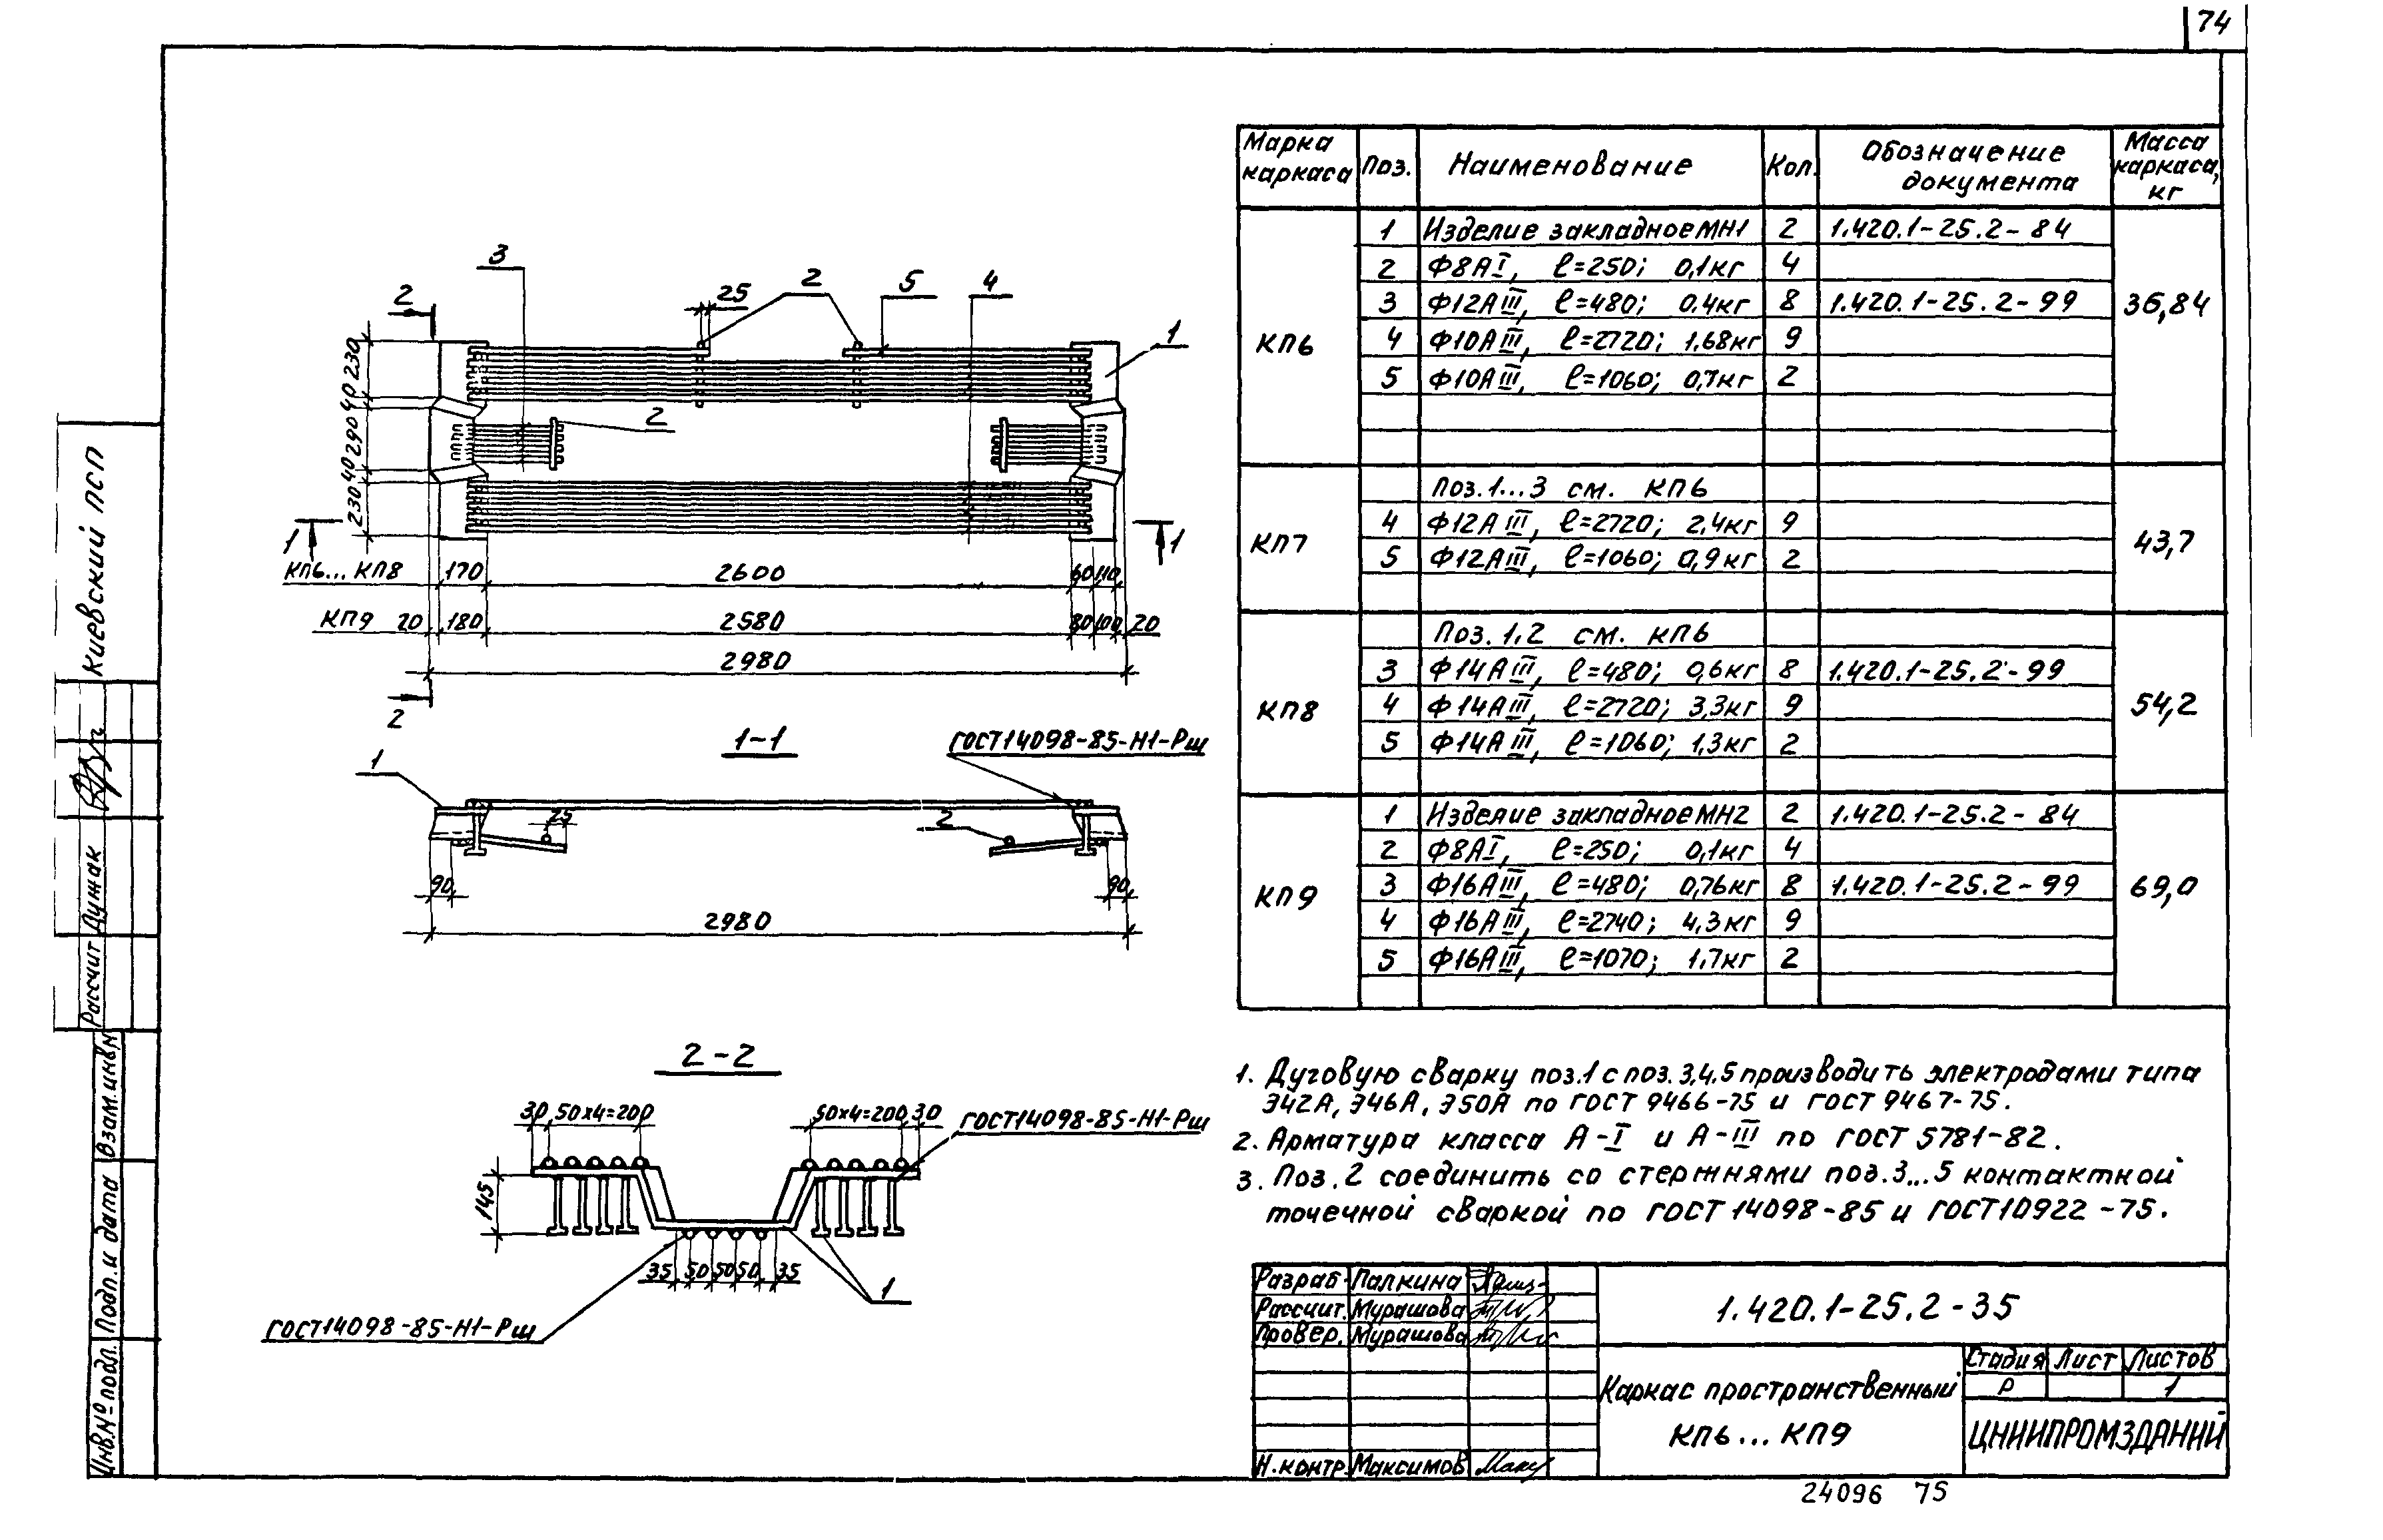 74
Марка каркаса Поз. Наименование Кол. Обозначение документа Масса каркаса, кг
КП6
1 Изделие закладное МН1 2 1.420.1-25.2-84
2 Ф8АI, ℓ=250; 0,1кг 4
3 Ф12АIII, ℓ=480; 0,4кг 8 1.420.1-25.2-99
4 Ф10АIII, ℓ=2720; 1,68кг 9
5 Ф10АIII, ℓ=1060; 0,7кг 2
36,84
КП7
Поз.1...3 см. КП6
4 Ф12АIII, ℓ=2720; 2,4кг 9
5 Ф12АIII, ℓ=1060; 0,9кг 2
43,7
КП8
Поз.1,2 см. КП6
3 Ф14АIII, ℓ=480; 0,6кг 8 1.420.1-25.2-99
4 Ф14АIII, ℓ=2720; 3,3кг 9
5 Ф14АIII, ℓ=1060; 1,3кг 2
54,2
КП9
1 Изделие закладное МН2 2 1.420.1-25.2-84
2 Ф8АI, ℓ=250; 0,1кг 4
3 Ф16АIII, ℓ=480; 0,76кг 8 1.420.1-25.2-99
4 Ф16АIII, ℓ=2740; 4,3кг 9
5 Ф16АIII, ℓ=1070; 1,7кг 2
69,0
3
2 25 2 5 4
1
2
230 40 290 40 230
1 1
КП6...КП8 170 2600 60 110
КП9 20 180 2580 80 100 20
2980
2
1-1
ГОСТ14098-85-Н1-Рш
1
25 2
90 90
2980
2-2
30 50х4=200 50х4=200 30
ГОСТ14098-85-Н1-Рш
145
35 50 50 50 35
1
ГОСТ14098-85-Н1-Рш
1. Дуговую сварку поз.1 с поз.3,4,5 производить электродами типа
Э42А, Э46А, Э50А по ГОСТ 9466-75 и ГОСТ 9467-75.
2. Арматура класса А-I и А-III по ГОСТ 5781-82.
3. Поз.2 соединить со стержнями поз.3...5 контактной
точечной сваркой по ГОСТ 14098-85 и ГОСТ10922-75.
Разраб. Палкина
Рассчит. Мурашова
Провер. Мурашова
Н.контр. Максимов
1.420.1-25.2-35
Каркас пространственный
КП6...КП9
Стадия Лист Листов
Р 1
ЦНИИПРОМЗДАНИЙ
24096 75
Киевский ПСП
Рассчит Дужак
Взам.инв.N
Подп. и дата
Инв.№ подл.